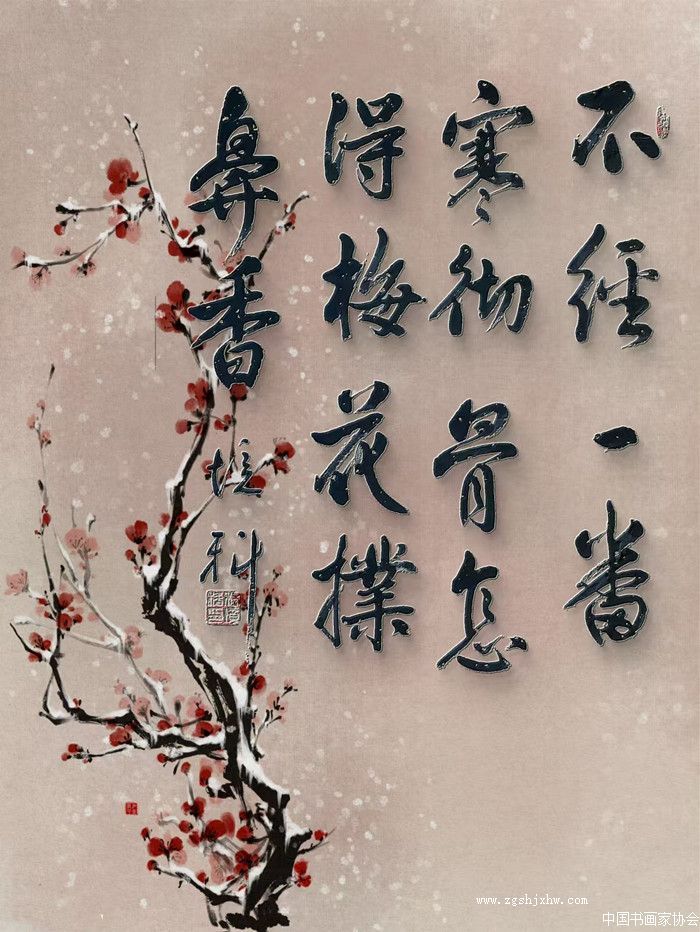 不经一番
寒彻骨怎
得梅花扑
鼻香
培科
www.zgshjxhw.com
中国书画家协会